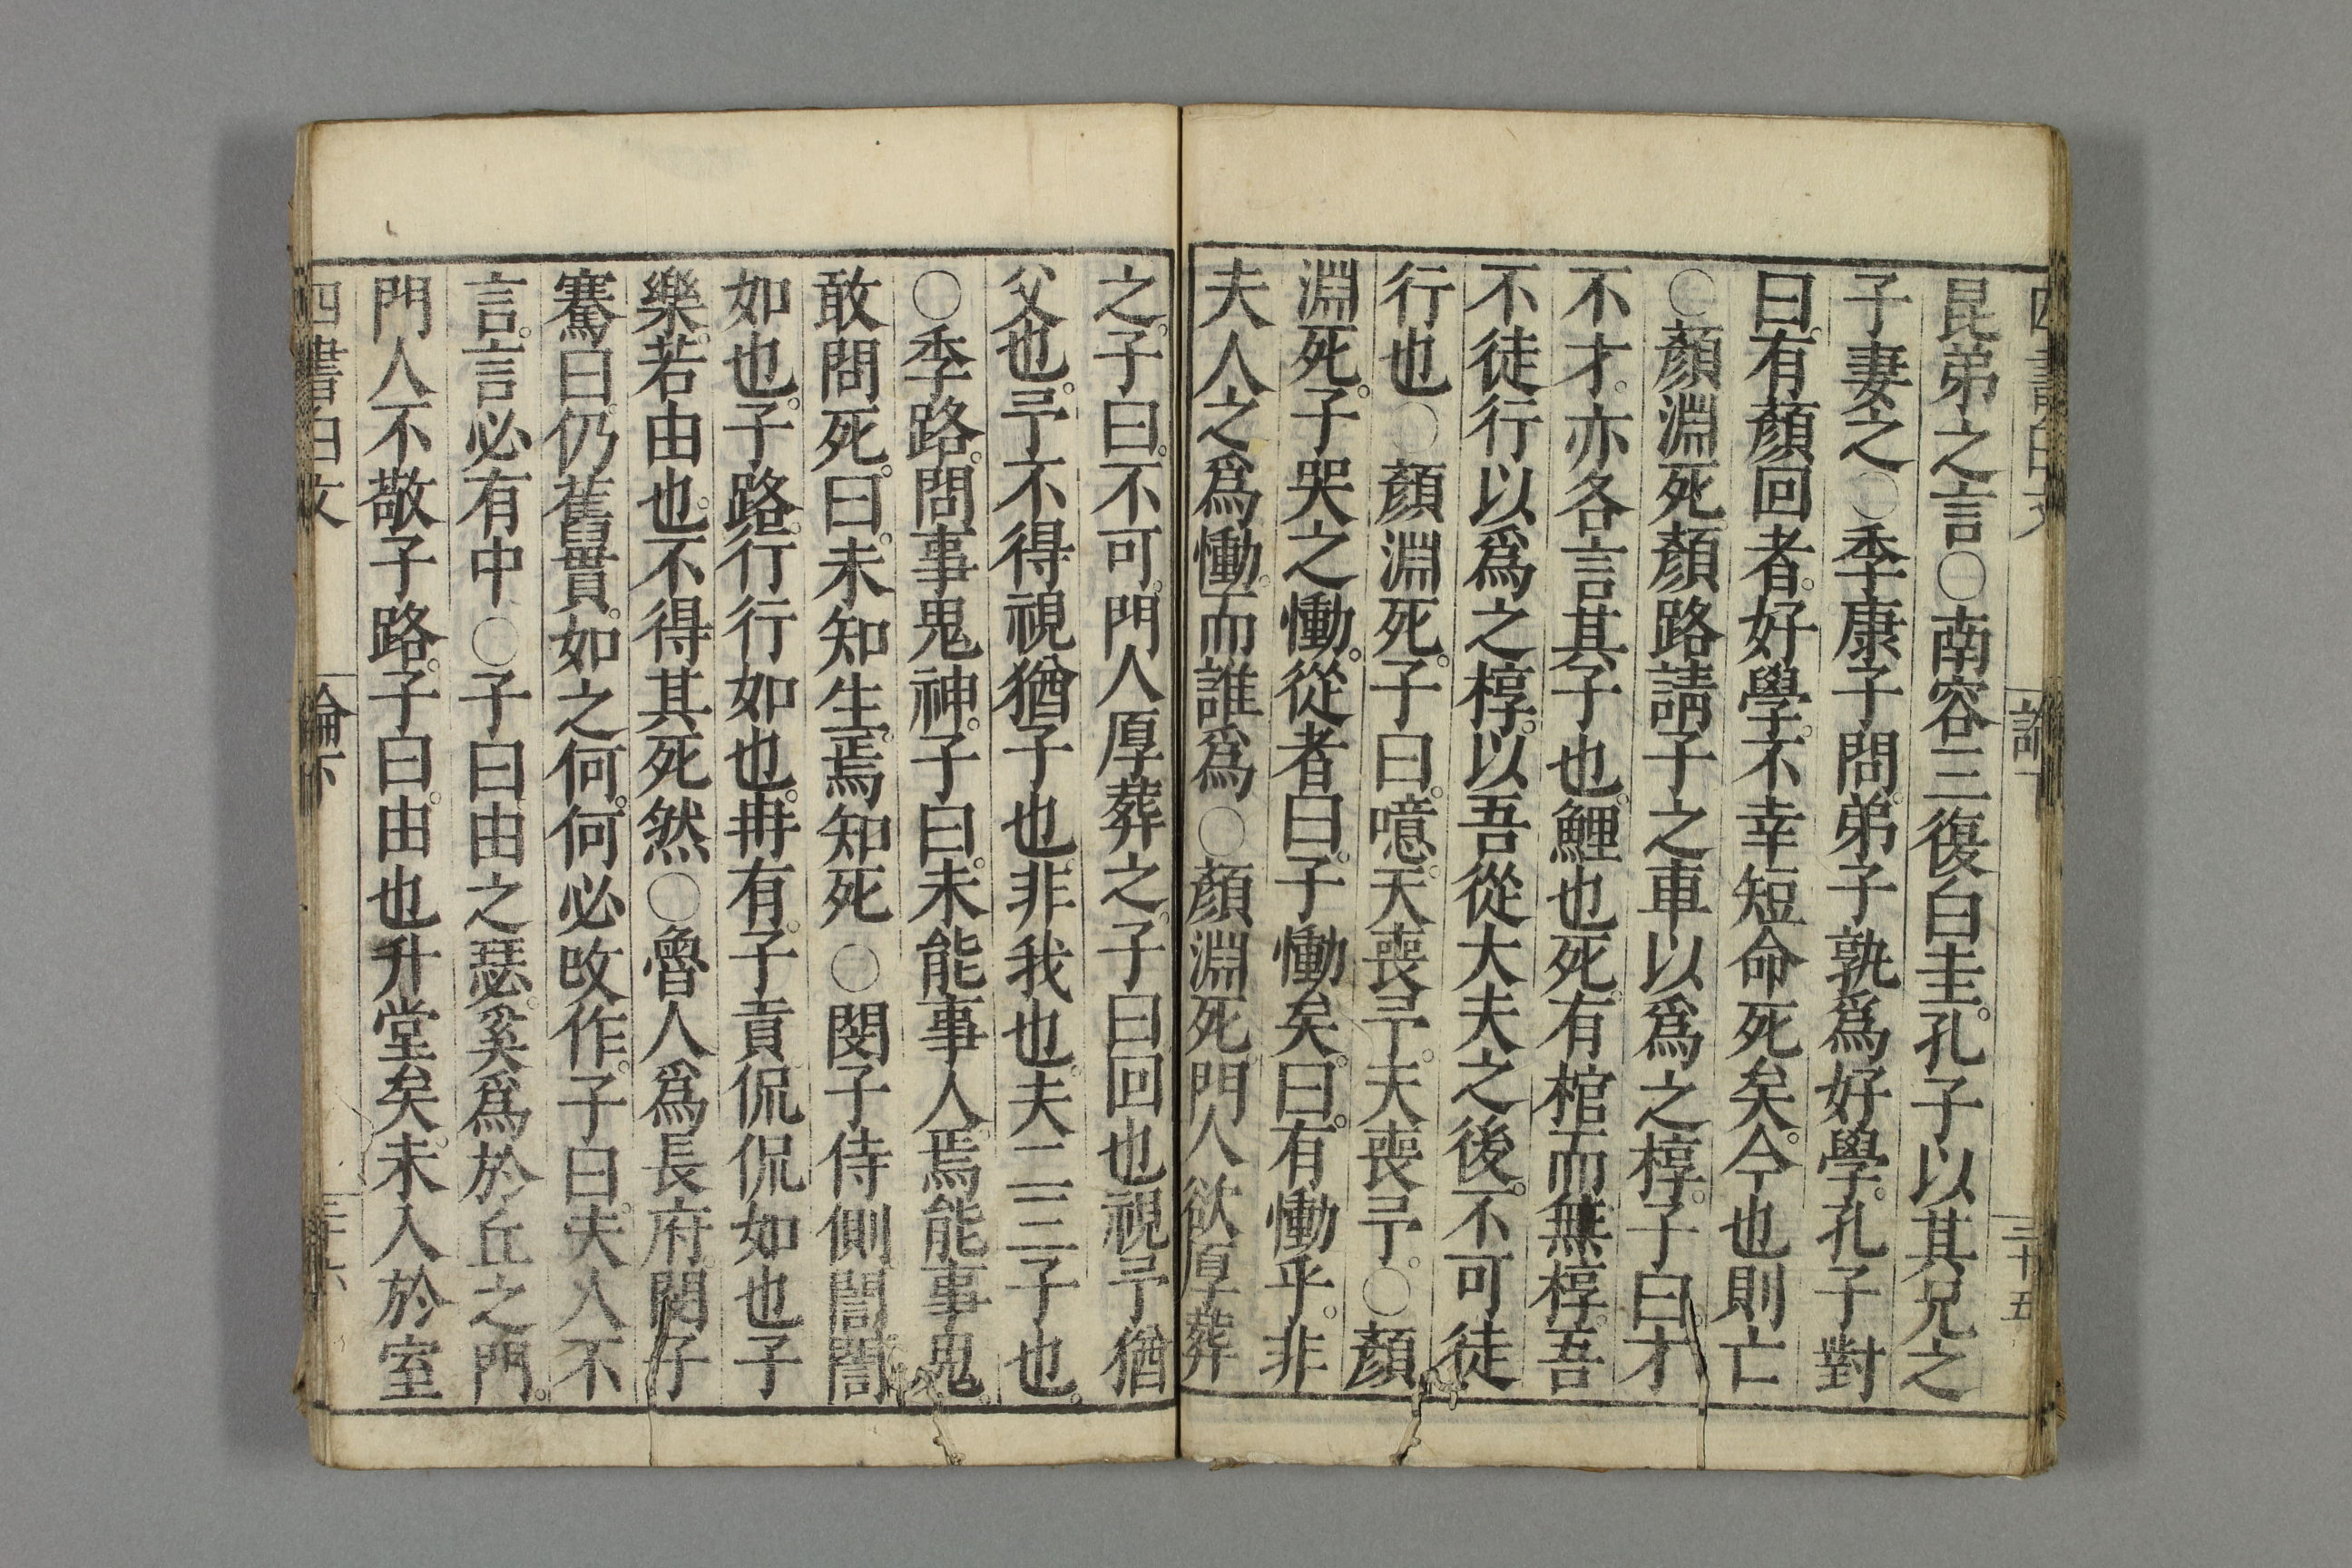 四書白文 論下 三十五
昆弟之言○南容三復白圭。孔子以其兄之
子妻之○季康子問。弟子孰爲好學。孔子對
曰。有顏回者。好學。不幸短命死矣。今也則亡
○顏淵死顏路請子之車以爲之椁。子曰。才
不才。亦各言其子也。鯉也死。有棺而無椁。吾
不徒行以爲之椁。以吾從大夫之後。不可徒
行也○顏淵死。子曰。噫。天喪予。天喪予。○顏
淵死。子哭之慟。從者曰。子慟矣。曰。有慟乎。非
夫人之爲慟。而誰爲○顏淵死門人欲厚葬
之。子曰。不可。門人厚葬之。子曰回也視予猶
父也。予不得視猶子也。非我也。夫二三子也。
○季路。問事鬼神。子曰。未能事人。焉能事鬼。
敢問死。曰。未知生。焉知死○閔子侍側誾誾
如也。子路。行行如也。冉有。子貢侃侃如也子
樂。若由也。不得其死然○魯人爲長府。閔子
騫曰。仍舊貫。如之何。何必改作。子曰。夫人不
言。言必有中○子曰由之瑟。奚爲於丘之門。
門人不敬子路。子曰。由也升堂矣。未入於室
四書白文 論下 三十六